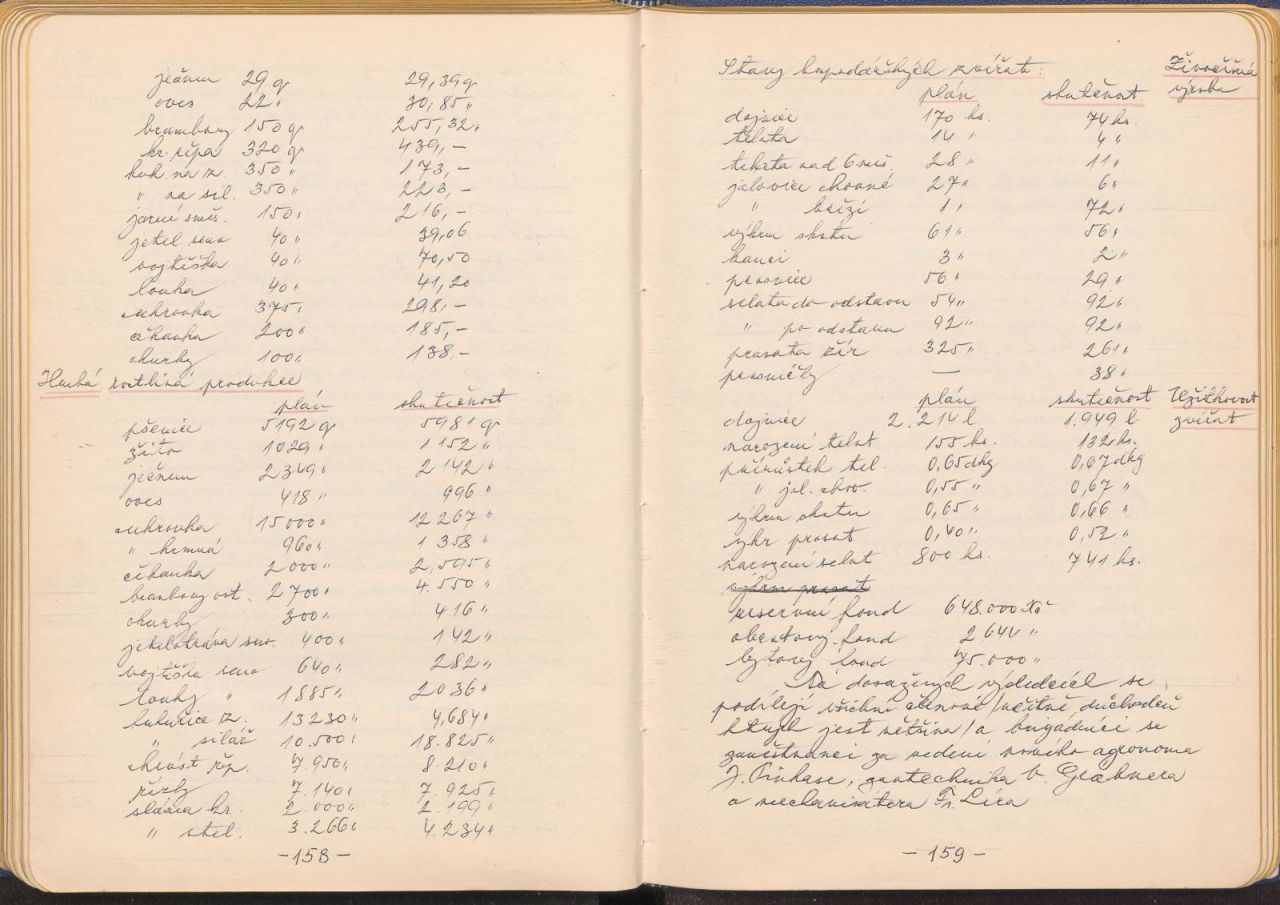 ječmen 29 q 29,39 q
oves 22 " 30,85 "
brambory 150 q 255,32 "
kr. řípa 320 q 439,-
kuk na z. 350 " 173,-
" na sil. 350 " 223,-
jarní směs. 150 " 216,-
jetel seno 40 " 39,06
vojtěška 40 " 70,50
louka 40 " 41,20
cukrovka 375 " 298,-
čekanka 200 " 185,-
okurky 100 " 138,-
Hrubá rostliná produkce
plán skutečnost
pšenice 5192 q 5981 q
žito 1029 " 1152 "
ječmen 2349 " 2142 "
oves 418 " 996 "
cukrovka 15000 " 12267 "
" krmná 960 " 1358 "
čekanka 2000 " 2,595 "
brambory ost. 2700 " 4.550 "
okurky 300 " 416 "
jetelotráva seno. 400 " 142 "
vojtěška seno 640 " 282 "
louky " 1885 " 2036 "
kukuřice z. 13230 " 4,684 "
" siláž 10.500 " 18.825 "
chrást řp. 7.950 " 8.210 "
řízky 7.140 " 7.925 "
sláma kr. 2.000 " 2.199 "
" stel. 3.266 " 4.234 "
-158-
Stavy hospodářských zvířat: Živočišná
plán skutečnot. výroba
dojnice 170 ks. 74 ks.
telata 14 " 4 "
telata nad 6 měs. 28 " 11 "
jalovice chovné 27 " 6 "
" březí 1 " 72 "
výkrm skotu 61 " 56 "
kanci 3 " 2 "
prasnice 56 " 29 "
selata do odstavu 54 " 92 "
" po odstavu 92 " 92 "
prasata žír 325 " 261 "
prasničky — 38 "
plán skutečnost Užitkovost
dojnice 2.214 l 1.949 l zvířat
narození telat 155 ks. 132 ks.
přírůstek tel. 0,65 dkg 0,67 dkg
" jal. chov. 0,55 " 0,67 "
výkrm skotu 0,65 " 0,66 "
výkr prasat 0,40 " 0,52 "
narození selat 800 ks. 741 ks.
výkrm prasat
reservní fond 648.000 Kč
oběžtový fond 2.644 "
bytový fond 75.000 "
Na dosažených výsledcích se
podílejí všichni členové /včítně důchodců
kterých jest většina/ a brigádníci se
zaměstnanci za vedení agronoma
J. Pinkase, zootechnika V. Graebnera
a mechanisátora Fr. Líra
-159-